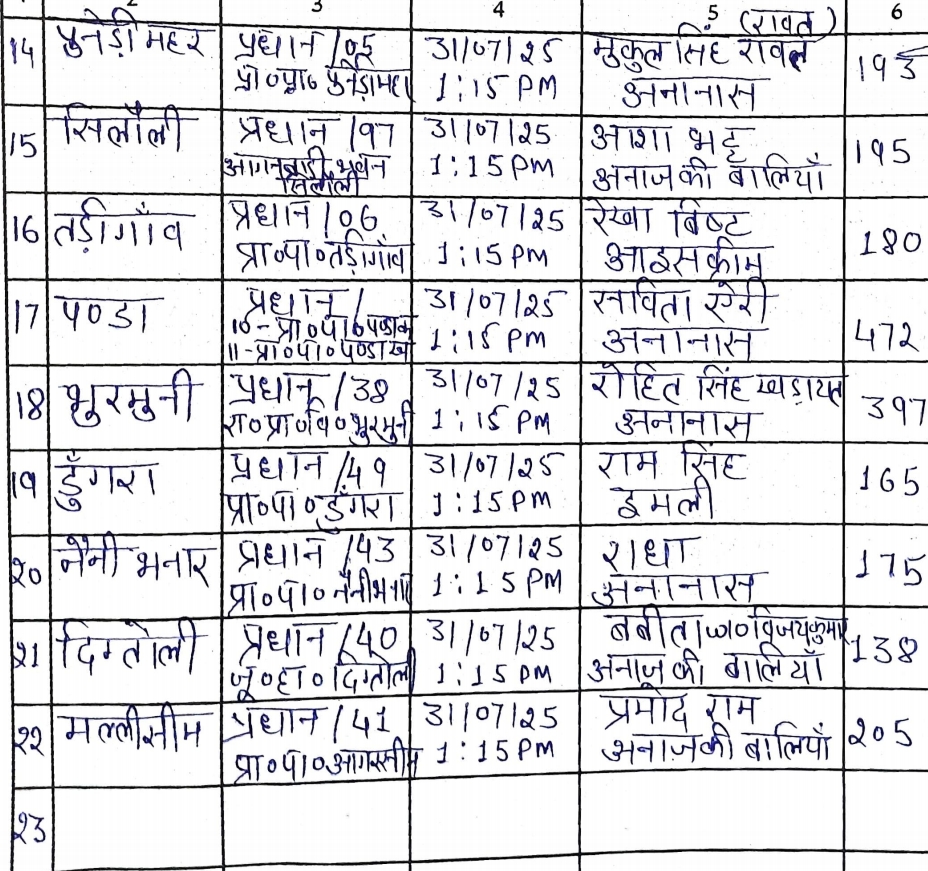 2 3 4 5 6
14 पुनेड़ी महर प्रधान /05 31/07/25 मुकुल सिंह रावत (रावत) 193
प्रा०पा० पुनेड़ीमहर 1:15 PM अनानास
15 सिलौली प्रधान /97 31/07/25 आशा भट्ट 195
आंगनबाड़ी भवन सिलौली 1:15 PM अनाज की बालियाँ
16 तड़ीगाँव प्रधान /06 31/07/25 रेखा बिष्ट 180
प्रा०पा०तड़ीगाँव 1:15 PM आइसक्रीम
17 पण्डा प्रधान / 31/07/25 सविता ऐरी 472
10-प्रा०पा०पण्डाक 1:15 PM अनानास
11-प्रा०पा०पण्डा ख
18 भुरमुनी प्रधान /38 31/07/25 रोहित सिंह खड़ायत 397
रा०प्रा०वि०भुरमुनी 1:15 PM अनानास
19 डुँगरा प्रधान /49 31/07/25 राम सिंह 165
प्रा०पा०डुँगरा 1:15 PM इमली
20 नैनी भनार प्रधान /43 31/07/25 राधा 175
प्रा०पा० नैनीभनार 1:15 PM अनानास
21 दिगतोली प्रधान /40 31/07/25 बबीता w/o विजय कुमार 138
जू०हा०दिगतोली 1:15 PM अनाज की बालियाँ
22 मल्लीसीम प्रधान /41 31/07/25 प्रमोद राम 205
प्रा०पा० 1:15 PM अनाज की बालियाँ
23